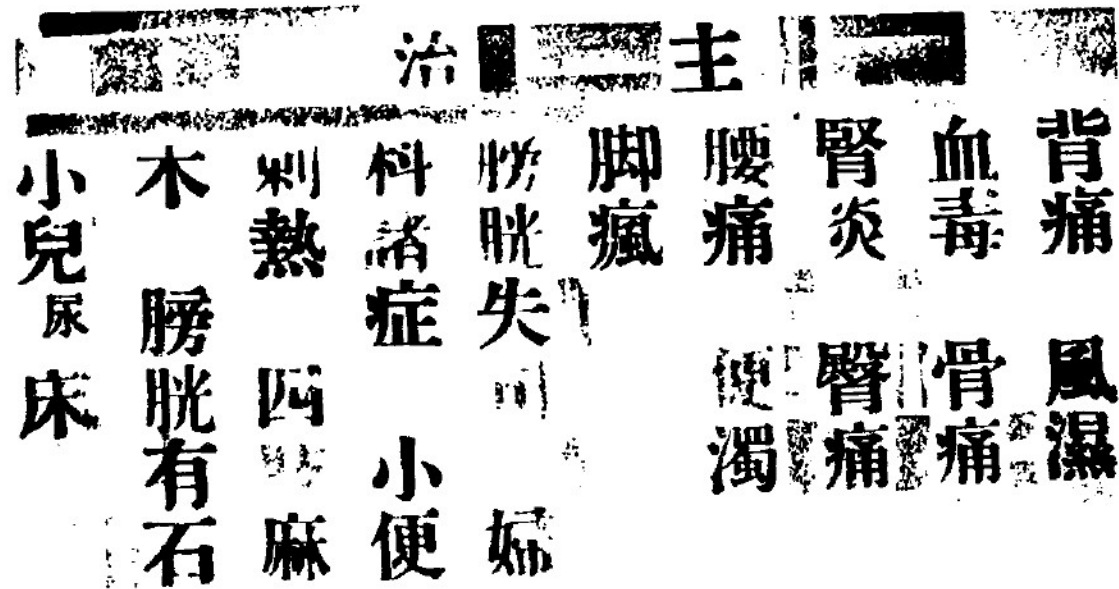 主治
背痛 風濕
血毒 骨痛
腎炎 臀痛
腰痛 便濁
脚瘋
膀胱失 婦
科諸症 小便
刺熱 四 麻
木 膀胱有石
小兒尿床